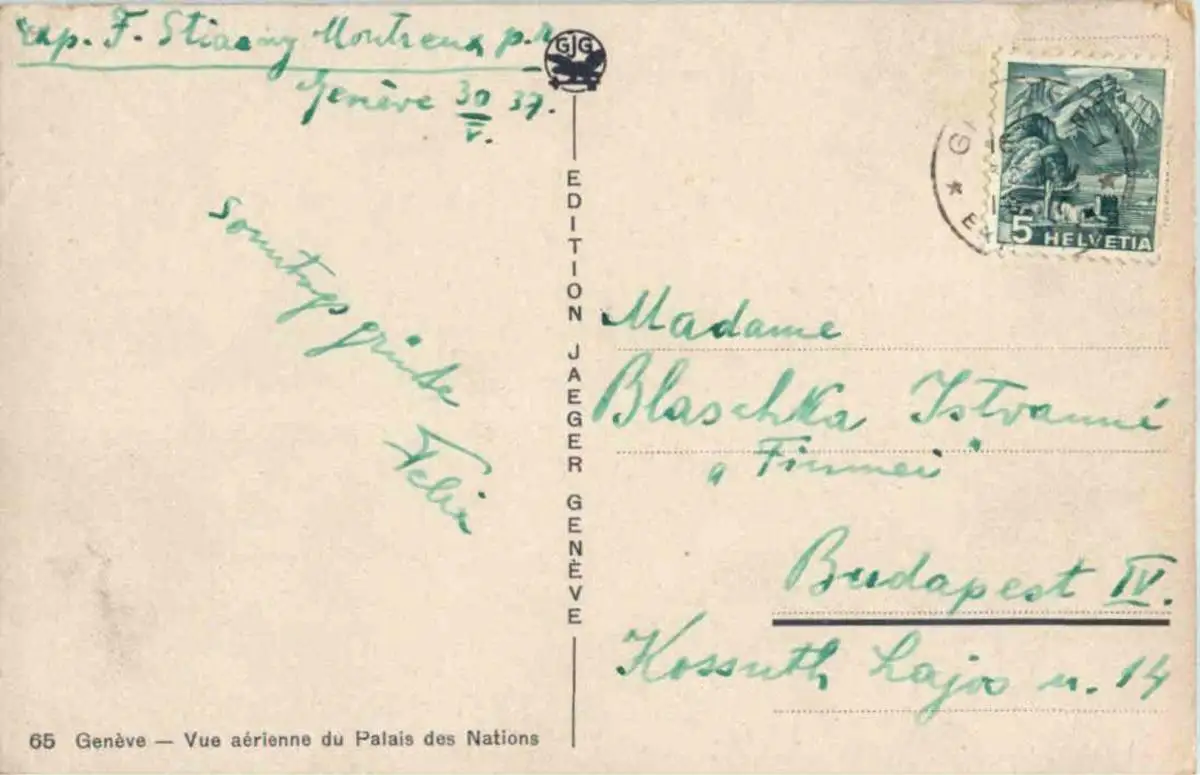 exp. F. Stiasny Montreux p.r.
Genève 30/V. 37.
Sonntagsgrüsse
GJG
EDITION JAEGER GENÈVE
5 HELVETIA
Madame
Blaschka Istvanné
Budapest IV.
Kossuth Lajos u. 14
65 Genève — Vue aérienne du Palais des Nations